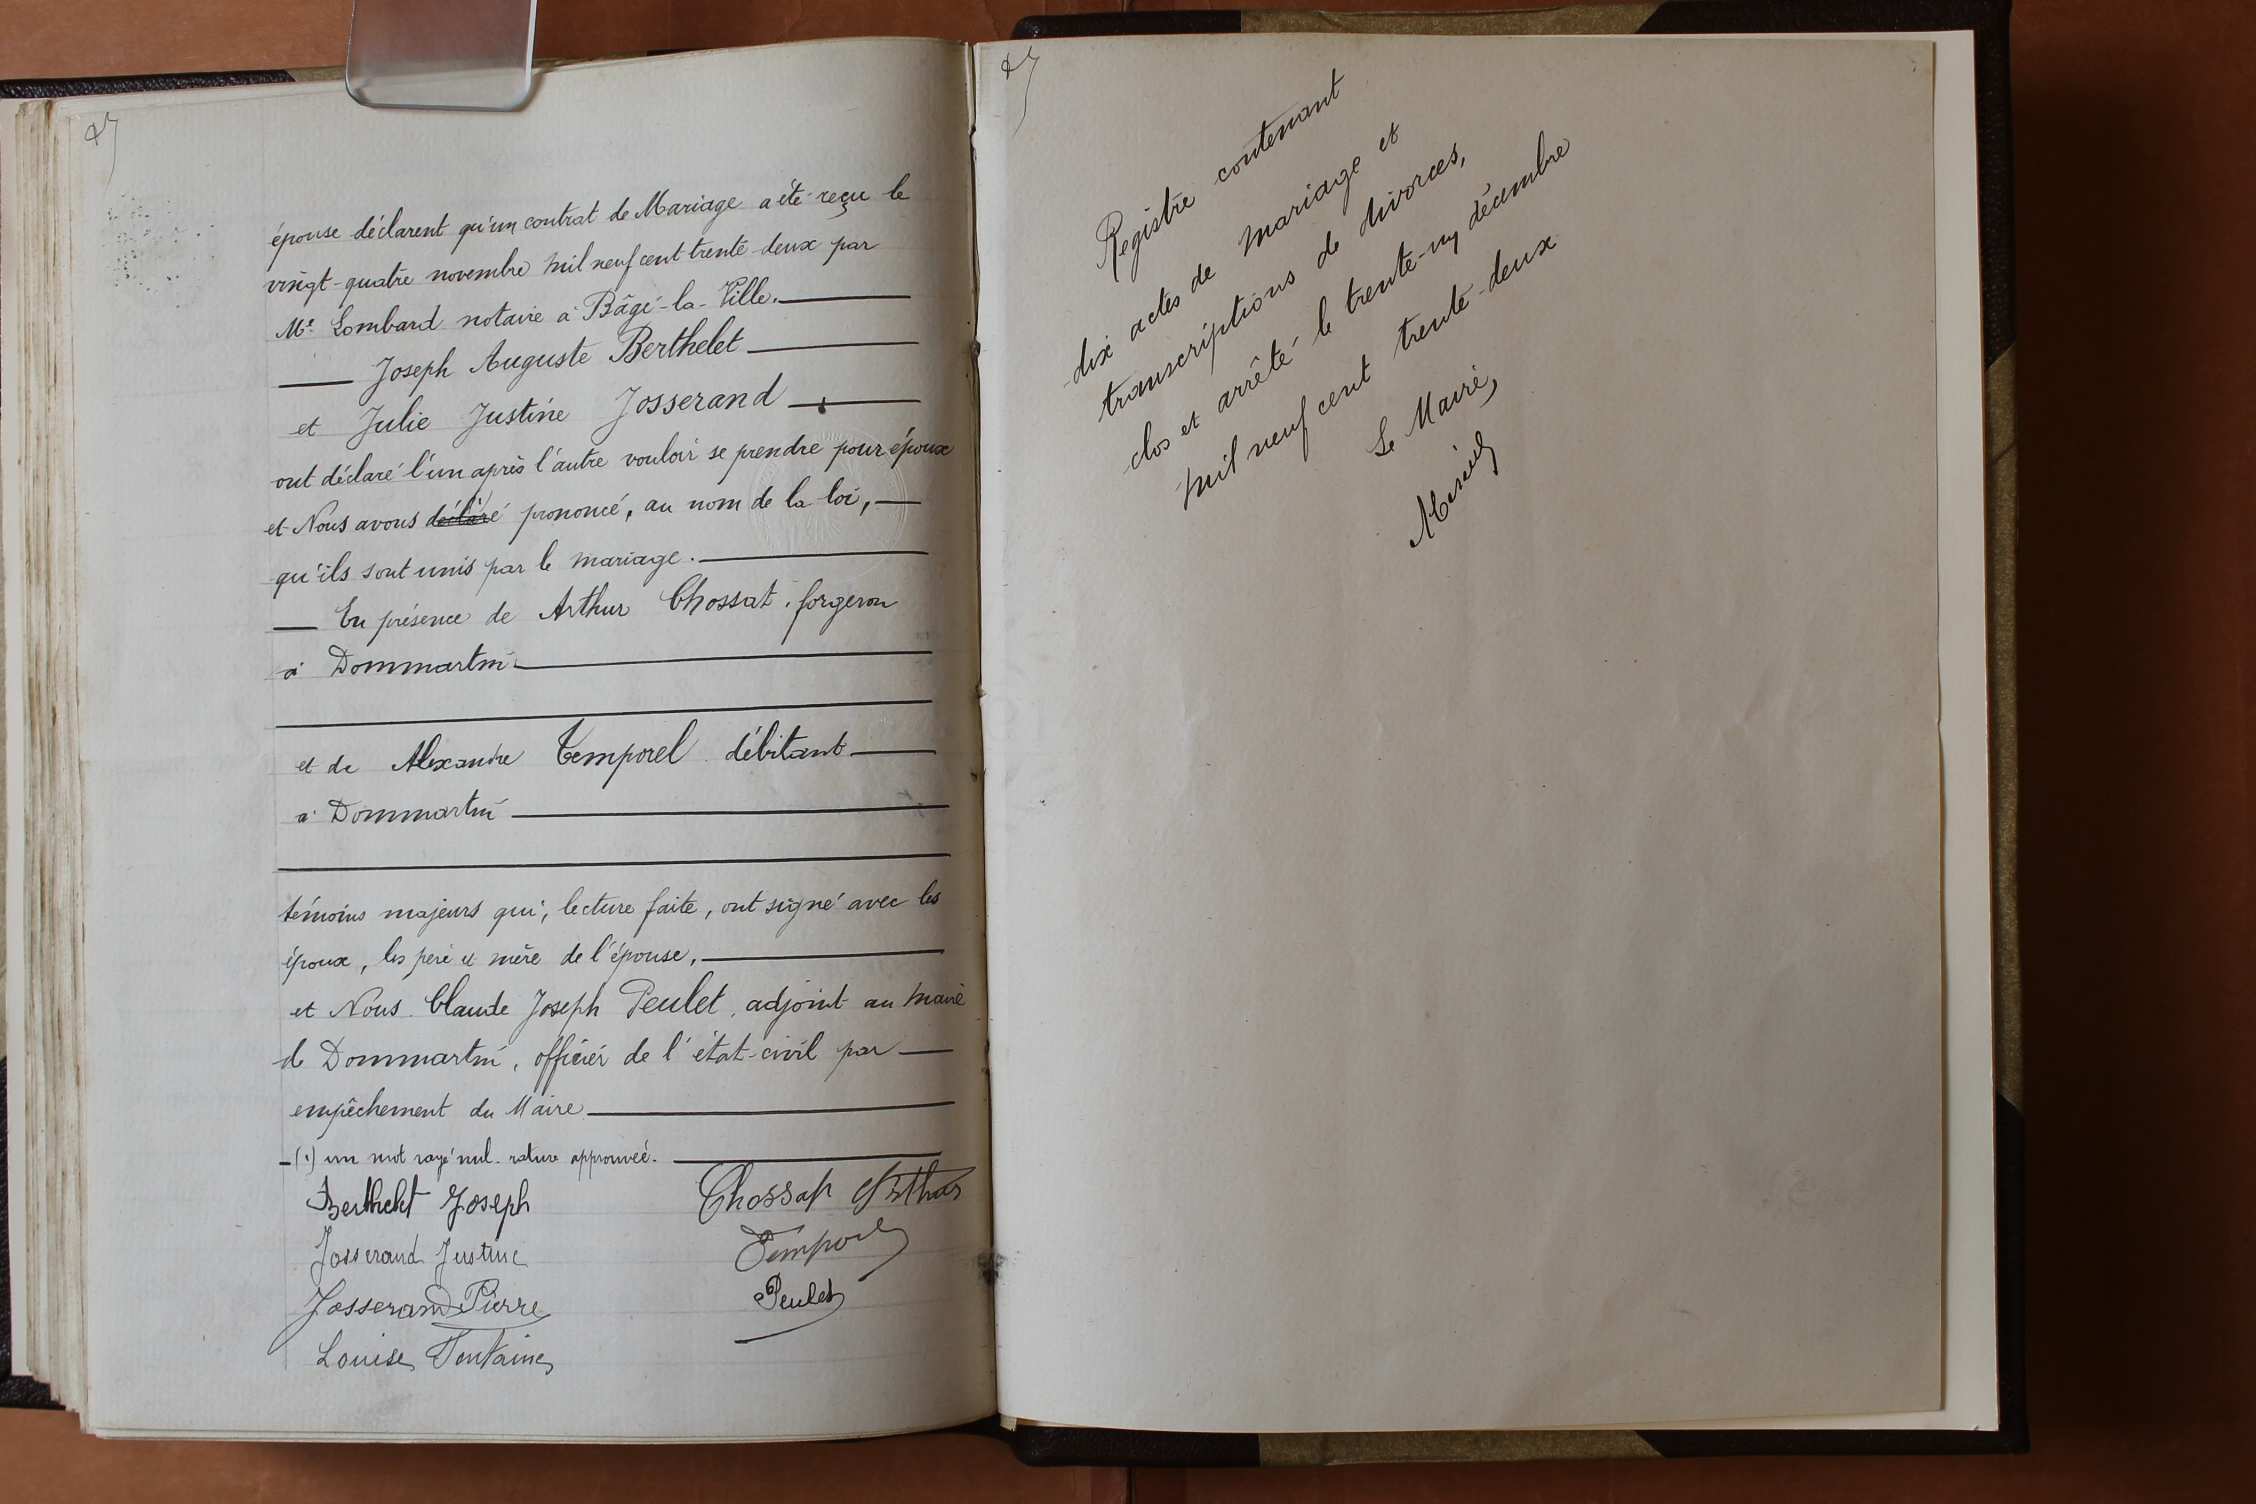 épouse déclarent qu'un contrat de Mariage a été reçu le
vingt-quatre novembre mil neuf cent trente-deux par
Me Lombard notaire à Bâgé-la-Ville.
Joseph Auguste Berthelet
et Julie Justine Josserand
ont déclaré l'un après l'autre vouloir se prendre pour époux
et Nous avons déclaré prononcé, au nom de la loi,
qu'ils sont unis par le mariage.
En présence de Arthur Chossat, forgeron
à Dommartin
et de Alexandre Temporel débitant
à Dommartin
témoins majeurs qui, lecture faite, ont signé avec les
époux, les père et mère de l'épouse,
et Nous Claude Joseph Peulet, adjoint au maire
de Dommartin, officier de l'état-civil par
empêchement du Maire
(1) un mot rayé nul. rature approuvée.
Berthelet Joseph
Chossat Arthur
Josserand Justine
Temporel
Josserand Pierre
Peulet
Louise Fontaine
Registre contenant
dix actes de mariage et
transcriptions de divorces,
clos et arrêté le trente-un décembre
mil neuf cent trente-deux
Le Maire,